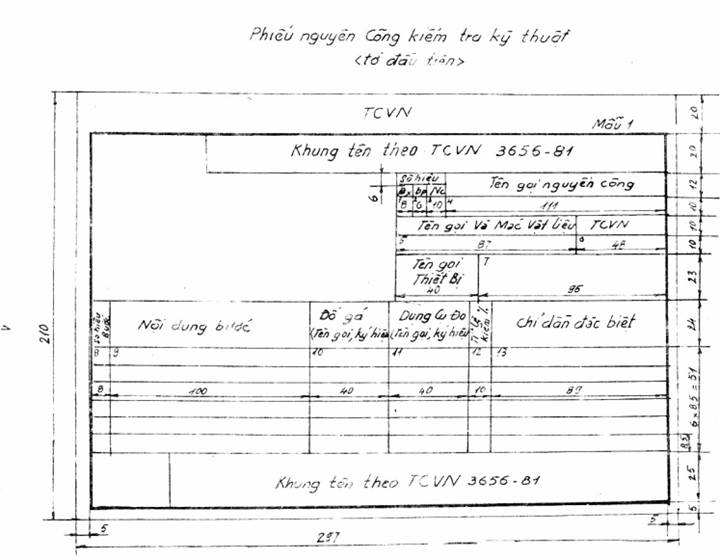 Phiếu nguyên công kiểm tra kỹ thuật
<tờ đầu tiên>
TCVN
Mẫu 1
20
Khung tên theo TCVN 3656-81
20
Số hiệu
Tên gọi nguyên công
12
6
Px bp Nc
8 6 10 4 111
10
Tên gọi Và Mác Vật liệu TCVN
10
5 87 6 48
10
Tên gọi
Thiết Bị
7
23
40 96
210
Số hiệu
Bước
Nội dung bước
Đồ gá
(Tên gọi, ký hiệu
Dụng Cụ Đo
(Tên gọi, ký hiệu
Tỉ lệ %
kiểm
Chỉ dẫn đặc biệt
24
8 9 10 11 12 13
8 100 40 40 10 89
6x8.5=51
8.5
Khung tên theo TCVN 3656-81
25
5
5 5
297